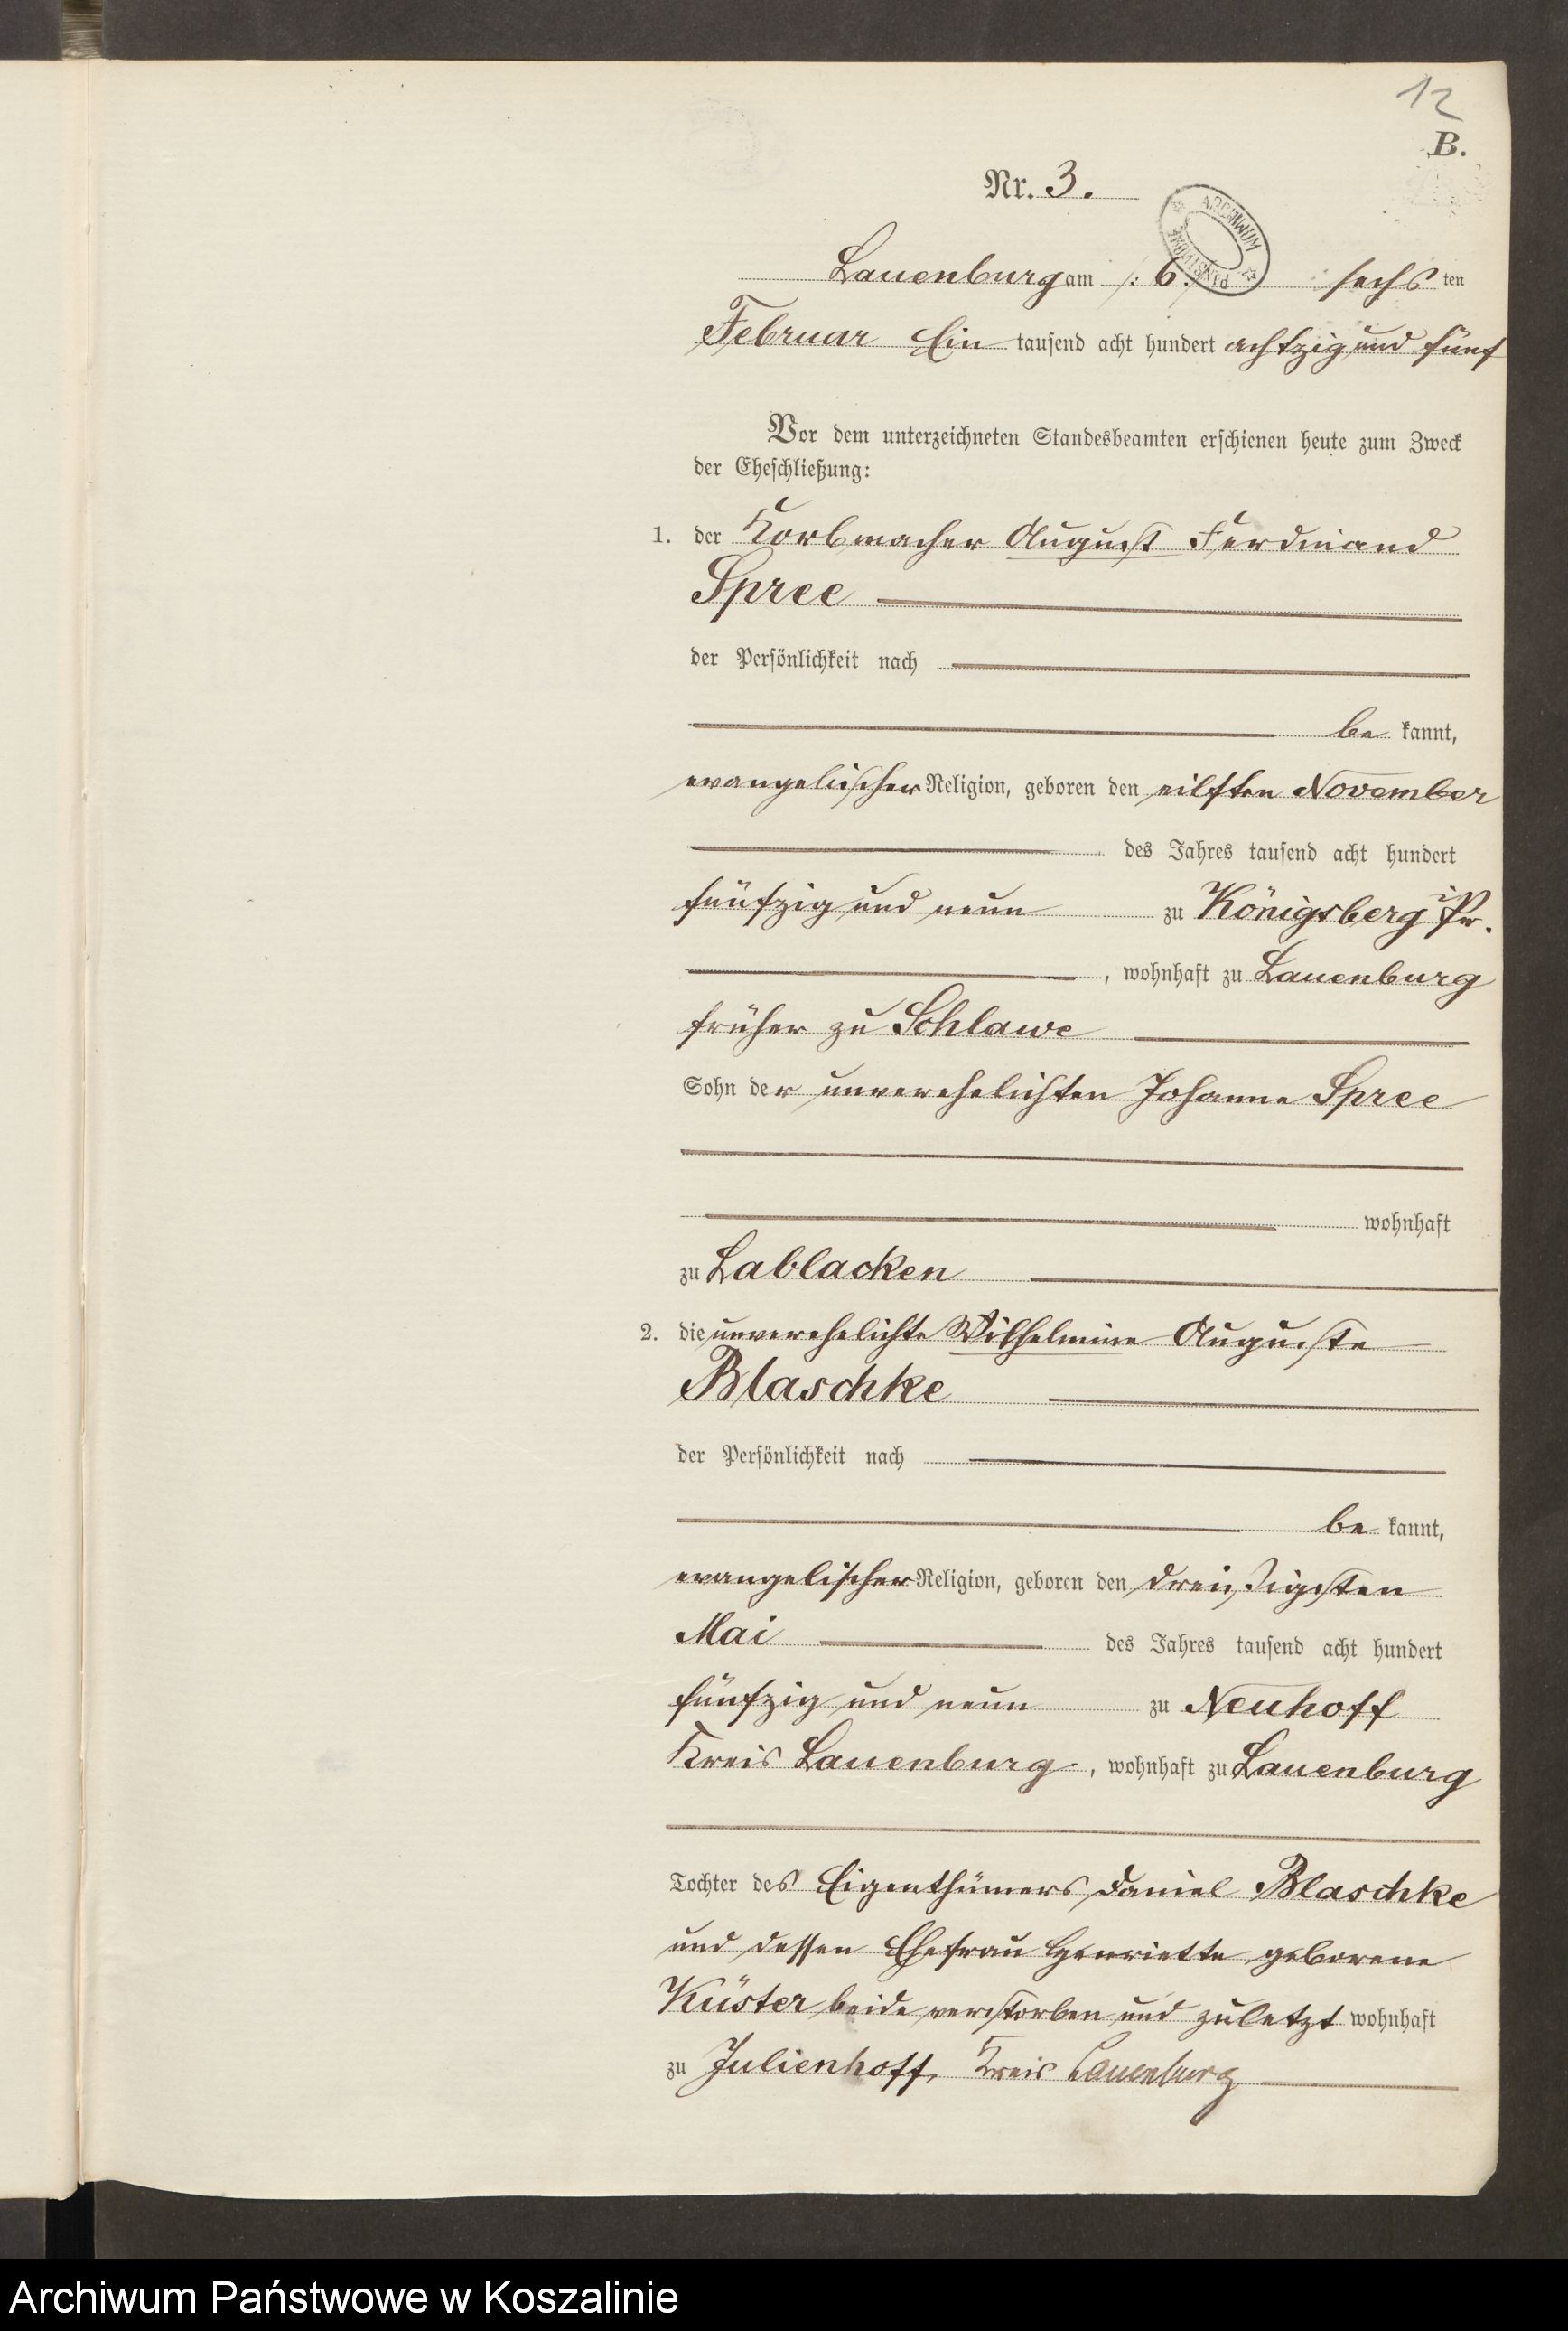 12
B.
Nr. 3.
ARCHIWUM PAŃSTWOWE
Lauenburg am /: 6. sechs ten
Februar Ein tausend acht hundert achtzig und fünf
Vor dem unterzeichneten Standesbeamten erschienen heute zum Zweck
der Eheschließung:
1. der Korbmacher August Ferdinand
Spree
der Persönlichkeit nach
be kannt,
evangelischer Religion, geboren den eilften November
des Jahres tausend acht hundert
fünfzig und neun zu Königsberg i/Pr.
, wohnhaft zu Lauenburg
früher zu Schlawe
Sohn der unverehelichten Johanne Spree
wohnhaft
zu Lablacken
2. die unverehelichte Wilhelmine Auguste
Blaschke
der Persönlichkeit nach
be kannt,
evangelischer Religion, geboren den dreißigsten
Mai des Jahres tausend acht hundert
fünfzig und neun zu Neuhoff
Kreis Lauenburg, wohnhaft zu Lauenburg
Tochter des Eigenthümers Daniel Blaschke
und dessen Ehefrau Henriette geborene
Küster beide verstorben und zuletzt wohnhaft
zu Julienhoff, Kreis Lauenburg
Archiwum Państwowe w Koszalinie